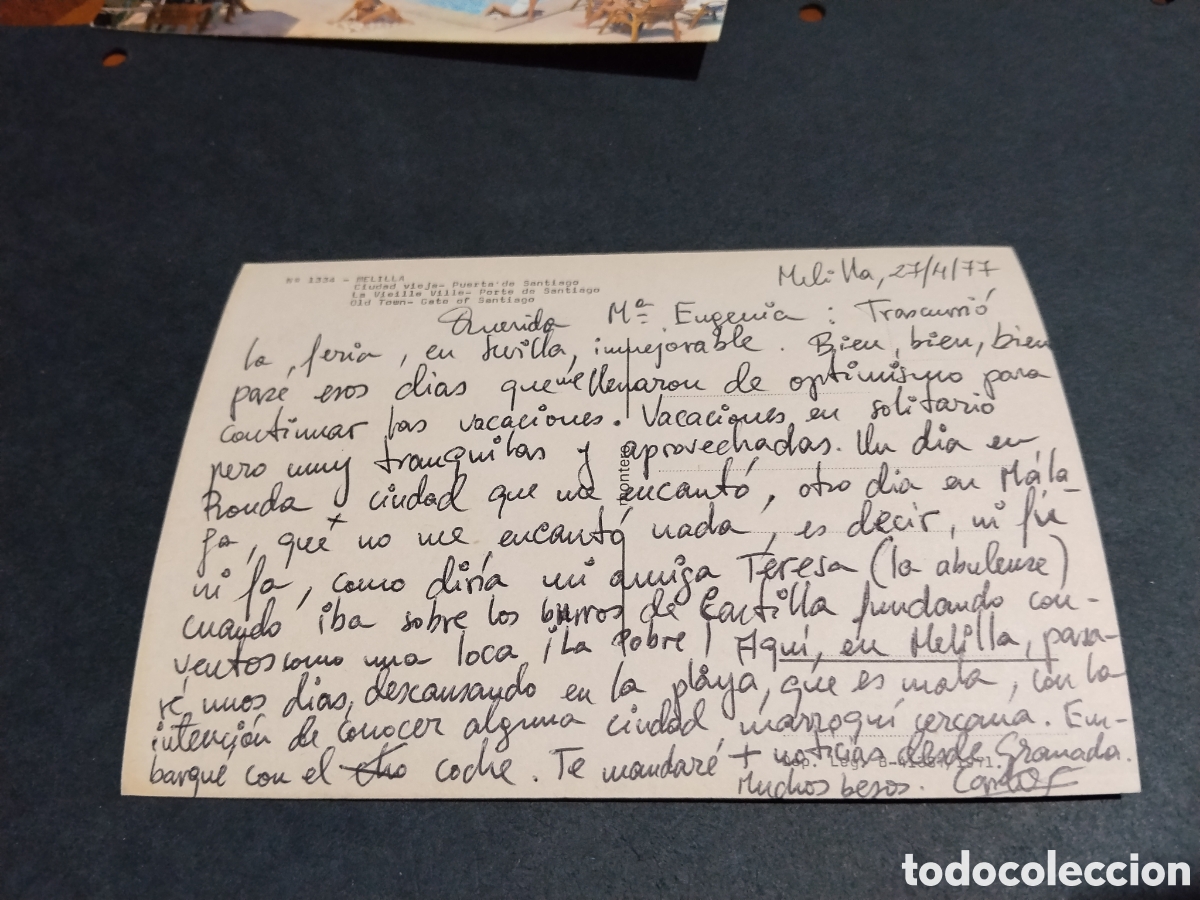 Nº 1334 - MELILLA
Ciudad vieja- Puerta de Santiago
La Vieille Ville- Porte de Santiago
Old Town- Gate of Santiago
Melilla, 27/4/77
Querida Mª Eugenia : Trascurrió
la feria, en Sevilla, impejorable. Bien, bien, bien
pasé esos dias que me llenaron de optimismo para
continuar las vacaciones. Vacaciones en solitario
pero muy tranquilas y aprovechadas. Un dia en
Ronda ciudad que me encantó, otro dia en Mála-
ga, que no me encantó nada, es decir, ni fú
ni fa, como diría mi amiga Teresa (la abulense)
cuando iba sobre los burros de Castilla fundando con-
ventos como una loca ¡La pobre! Aquí, en Melilla, pasa-
ré unos dias, descansando en la playa, que es mala, con la
intención de conocer alguna ciudad marroquí cercana. Em-
barqué con el coche. Te mandaré + noticias desde Granada.
Muchos besos. Carlos
todocoleccion